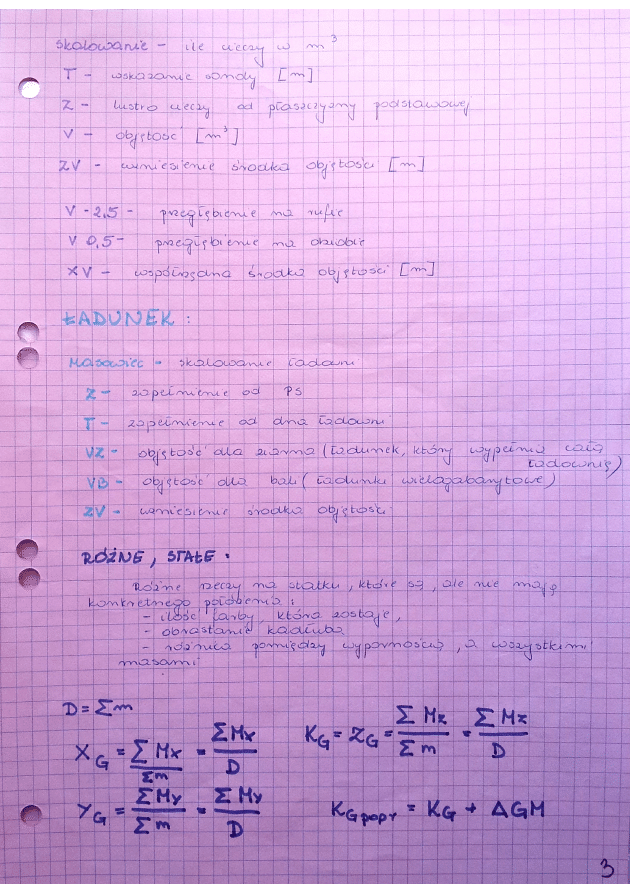 skalowanie - ile cieczy w m³
T - wskazanie sondy [m]
Z - lustro cieczy od płaszczyzny podstawowej
V - objętość [m³]
ZV - wzniesienie środka objętości [m]
V -2,5 - przegłębienie na rufie
V 0,5 - przegłębienie na dziobie
XV - współrzędna środka objętości [m]
ŁADUNEK :
Masowiec - skalowanie ładowni
Z - zapełnienie od PS
T - zapełnienie od dna ładowni
VZ - objętość dla ziarna (ładunek, który wypełnia całą
ładownię)
VB - objętość dla bali (ładunki wielogabarytowe)
ZV - wzniesienie środka objętości
RÓŻNE, STAŁE :
Różne rzeczy na statku, które są, ale nie mają
konkretnego położenia :
- ilość farby, która zostaje,
- obrastanie kadłuba
- różnica pomiędzy wypornością, a wszystkimi
masami
D = Σm
X_G = ΣMx / Σm = ΣMx / D
K_G = Z_G = ΣMz / Σm = ΣMz / D
Y_G = ΣMy / Σm = ΣMy / D
K_G popr = K_G + ΔGM
3